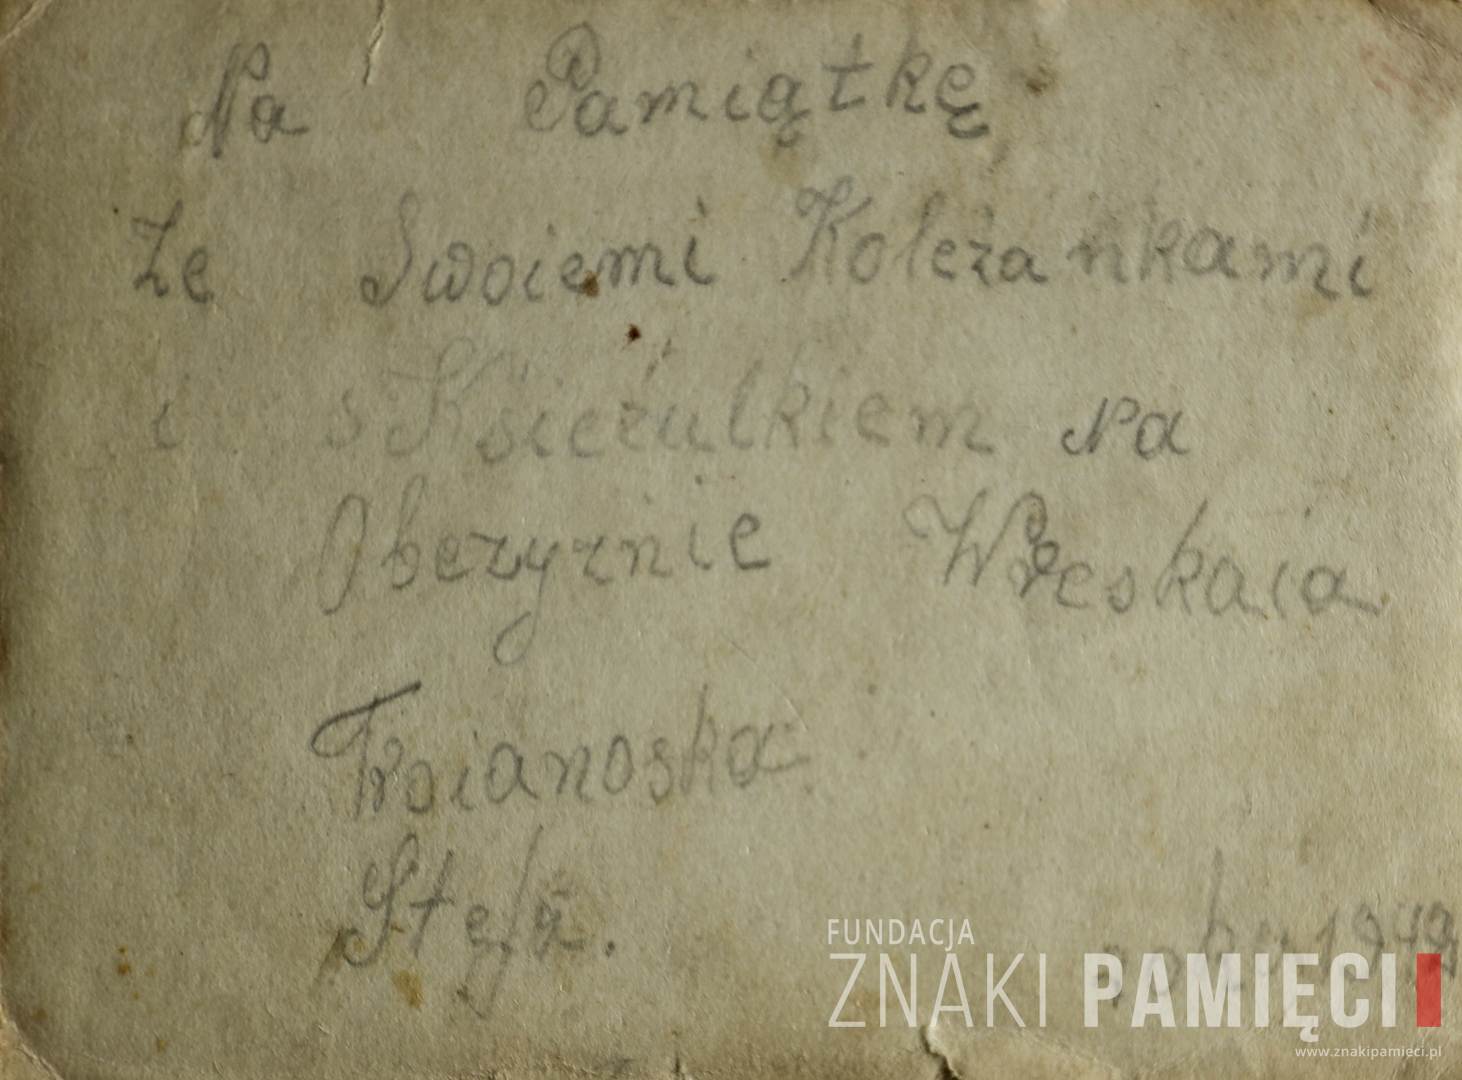 Na Pamiątkę
Ze Swoiemi Koleżankami
i s Księżulkiem Na
Obczyznie
Stefa.
1949
FUNDACJA
ZNAKI PAMIĘCI
www.znakipamieci.pl